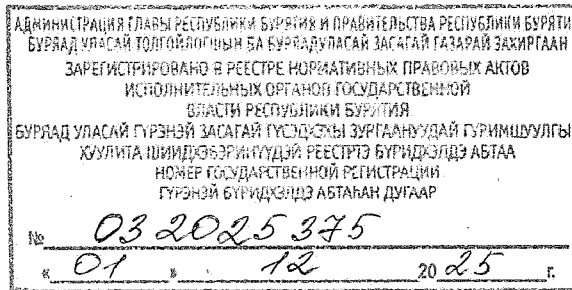 АДМИНИСТРАЦИЯ ГЛАВЫ РЕСПУБЛИКИ БУРЯТИЯ И ПРАВИТЕЛЬСТВА РЕСПУБЛИКИ БУРЯТИ
БУРЯАД УЛАСАЙ ТОЛГОЙЛОГШЫН БА БУРЯАД УЛАСАЙ ЗАСАГАЙ ГАЗАРАЙ ЗАХИРГААН
ЗАРЕГИСТРИРОВАНО В РЕЕСТРЕ НОРМАТИВНЫХ ПРАВОВЫХ АКТОВ
ИСПОЛНИТЕЛЬНЫХ ОРГАНОВ ГОСУДАРСТВЕННОЙ
ВЛАСТИ РЕСПУБЛИКИ БУРЯТИЯ
БУРЯАД УЛАСАЙ ГҮРЭНЭЙ ЗАСАГАЙ ГҮСЭДХЭХЫ ЗУРГААНУУДАЙ ГУРИМШУУЛГЫ
ХУУЛИТА ШИИДХЭБЭРИНҮҮДЭЙ РЕЕСТРТЭ БҮРИДХЭЛДЭ АБТАА
НОМЕР ГОСУДАРСТВЕННОЙ РЕГИСТРАЦИИ
ГҮРЭНЭЙ БҮРИДХЭЛДЭ АБТАҺАН ДУГААР
№ 032025375
« 01 » 12 20 25 г.